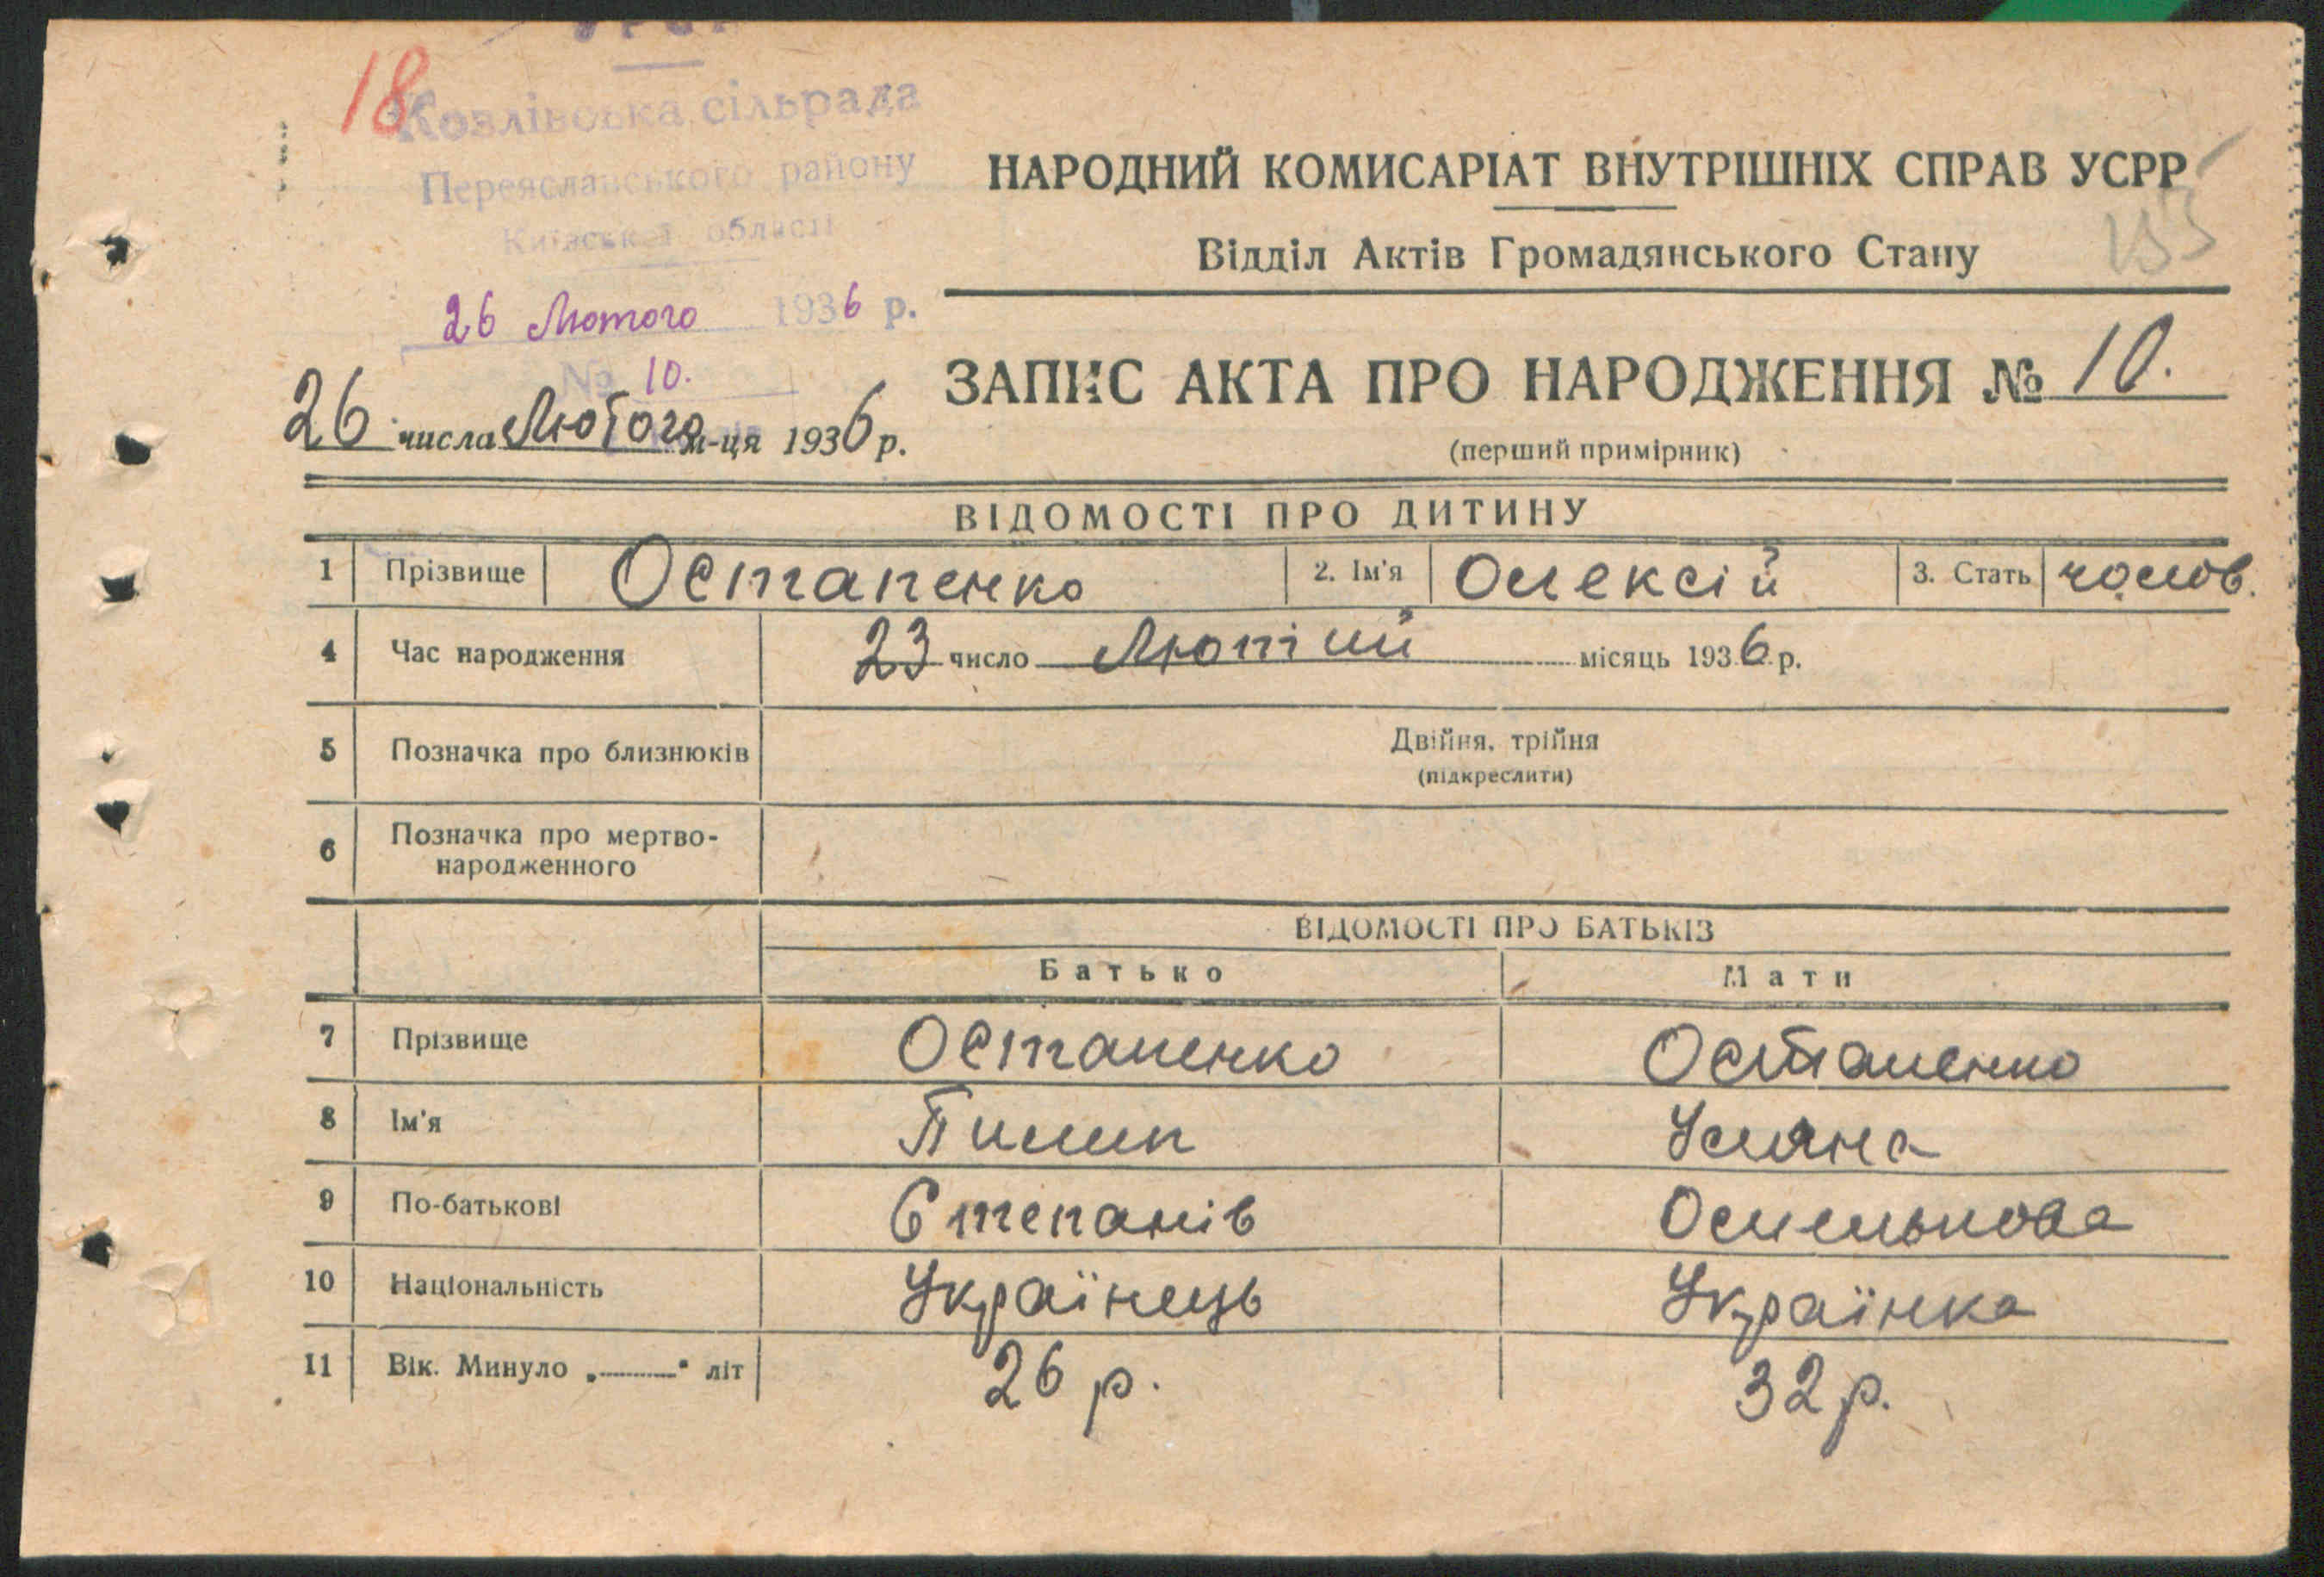 18
Козлівська сільрада
Переяславського району
Київської області
26 Лютого 1936 р.
№ 10.
НАРОДНИЙ КОМИСАРІАТ ВНУТРІШНІХ СПРАВ УСРР
Відділ Актів Громадянського Стану
26 числа Лютого м-ця 1936 р.
ЗАПИС АКТА ПРО НАРОДЖЕННЯ № 10.
(перший примірник)
ВІДОМОСТІ ПРО ДИТИНУ
1 Прізвище Остапенко 2. Ім'я Олексій 3. Стать чолов.
4 Час народження 23 число Лютий місяць 1936 р.
5 Позначка про близнюків Двійня, трійня
(підкреслити)
6 Позначка про мертво-
народженного
ВІДОМОСТІ ПРО БАТЬКІВ
Батько Мати
7 Прізвище Остапенко Остапенко
8 Ім'я Пилип Уляна
9 По-батькові Степанів Омелькова
10 Національність Українець Українка
11 Вік. Минуло „ “ літ 26 р. 32 р.